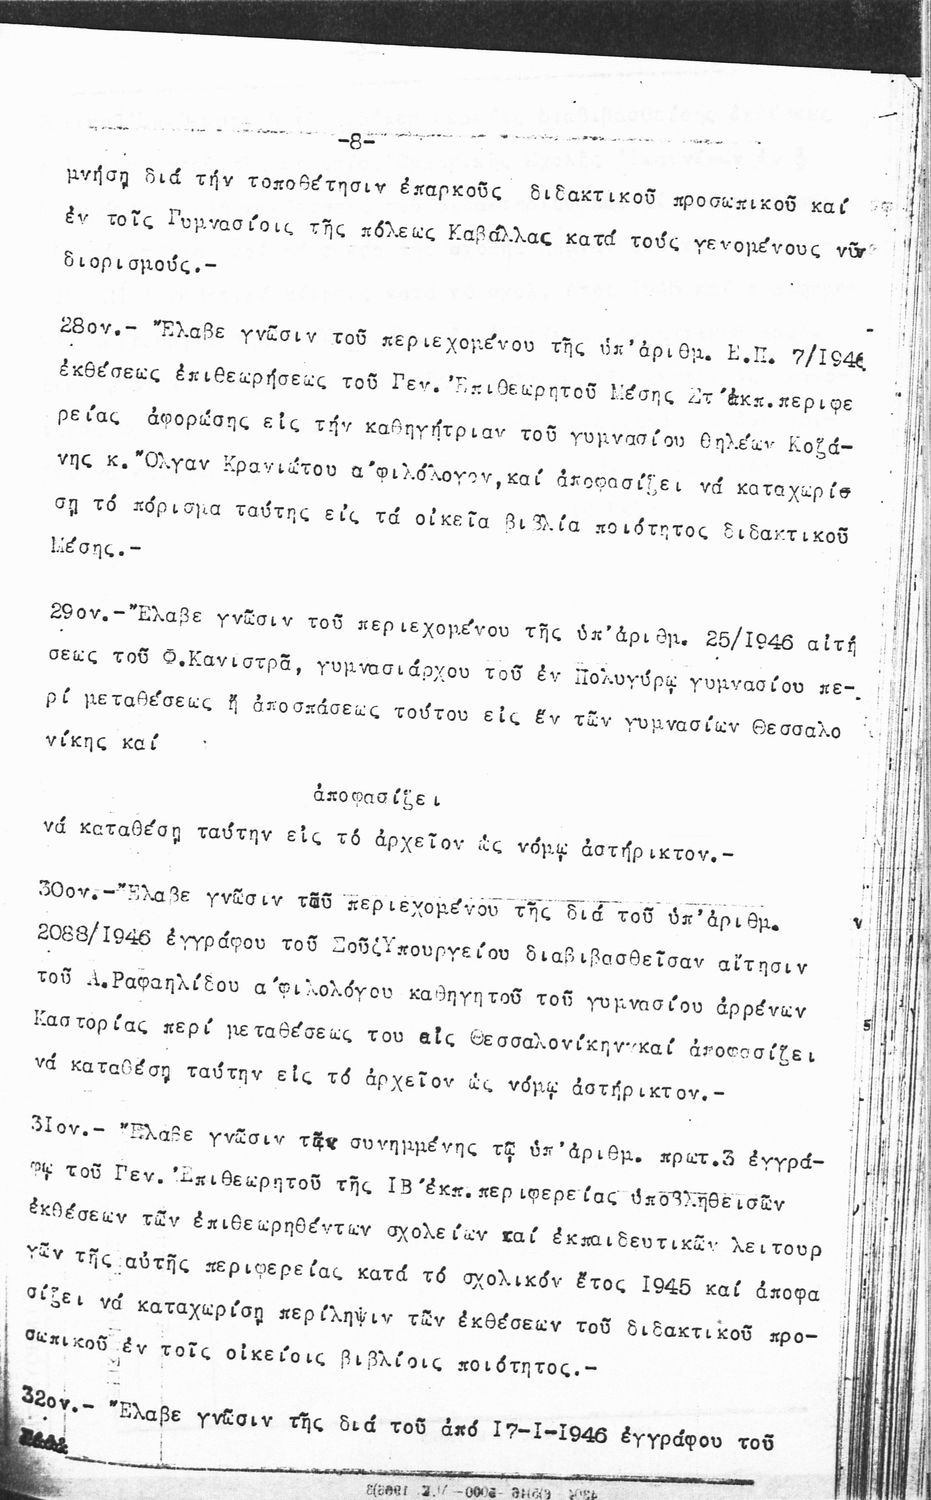 -8-
μνήσῃ διά τήν τοποθέτησιν ἐπαρκοῦς διδακτικοῦ προσωπικοῦ καί
ἐν τοῖς Γυμνασίοις τῆς πόλεως Καβάλλας κατά τούς γενομένους νῦν
διορισμούς.-
28ον.- Ἔλαβε γνῶσιν τοῦ περιεχομένου τῆς ὑπ'ἀριθμ. Ε.Π. 7/Ι946
ἐκθέσεως ἐπιθεωρήσεως τοῦ Γεν. Ἐπιθεωρητοῦ Μέσης Στ'ἐκπ.περιφε
ρείας ἀφορώσης εἰς τήν καθηγήτριαν τοῦ γυμνασίου θηλέων Κοζά-
νης κ. Ὄλγαν Κρανιώτου α'φιλόλογον,καί ἀποφασίζει νά καταχωρίσ
σῃ τό πόρισμα ταύτης εἰς τά οἰκεῖα βιβλία ποιότητος διδακτικοῦ
Μέσης.-
29ον.-Ἔλαβε γνῶσιν τοῦ περιεχομένου τῆς ὑπ'ἀριθμ. 25/Ι946 αἰτή
σεως τοῦ Φ.Κανιστρᾶ, γυμνασιάρχου τοῦ ἐν Πολυγύρῳ γυμνασίου πε-
ρί μεταθέσεως ἤ ἀποσπάσεως τούτου εἰς ἕν τῶν γυμνασίων Θεσσαλο
νίκης καί
ἀποφασίζει
νά καταθέσῃ ταύτην εἰς τό ἀρχεῖον ὡς νόμῳ ἀστήρικτον.-
30ον.-Ἔλαβε γνῶσιν τοῦ περιεχομένου τῆς διά τοῦ ὑπ'ἀριθμ.
2088/Ι946 ἐγγράφου τοῦ Σοῦζΰπουργείου διαβιβασθεῖσαν αἴτησιν
τοῦ Α.Ραφαηλίδου α'φιλολόγου καθηγητοῦ τοῦ γυμνασίου ἀρρένων
Καστορίας περί μεταθέσεως του εἰς Θεσσαλονίκην καί ἀποφασίζει
νά καταθέσῃ ταύτην εἰς τό ἀρχεῖον ὡς νόμῳ ἀστήρικτον.-
3Ιον.- Ἔλαβε γνῶσιν τῶν συνημμένης τῷ ὑπ'ἀριθμ. πρωτ.3 ἐγγρά-
φῳ τοῦ Γεν. Ἐπιθεωρητοῦ τῆς ΙΒ'ἐκπ.περιφερείας ὑποβληθεισῶν
ἐκθέσεων τῶν ἐπιθεωρηθέντων σχολείων καί ἐκπαιδευτικῶν λειτουρ
γῶν τῆς αὐτῆς περιφερείας κατά τό σχολικόν ἔτος Ι945 καί ἀποφα
σίζει νά καταχωρίσῃ περίληψιν τῶν ἐκθέσεων τοῦ διδακτικοῦ προ-
σωπικοῦ ἐν τοῖς οἰκείοις βιβλίοις ποιότητος.-
32ον.- Ἔλαβε γνῶσιν τῆς διά τοῦ ἀπό Ι7-Ι-Ι946 ἐγγράφου τοῦ